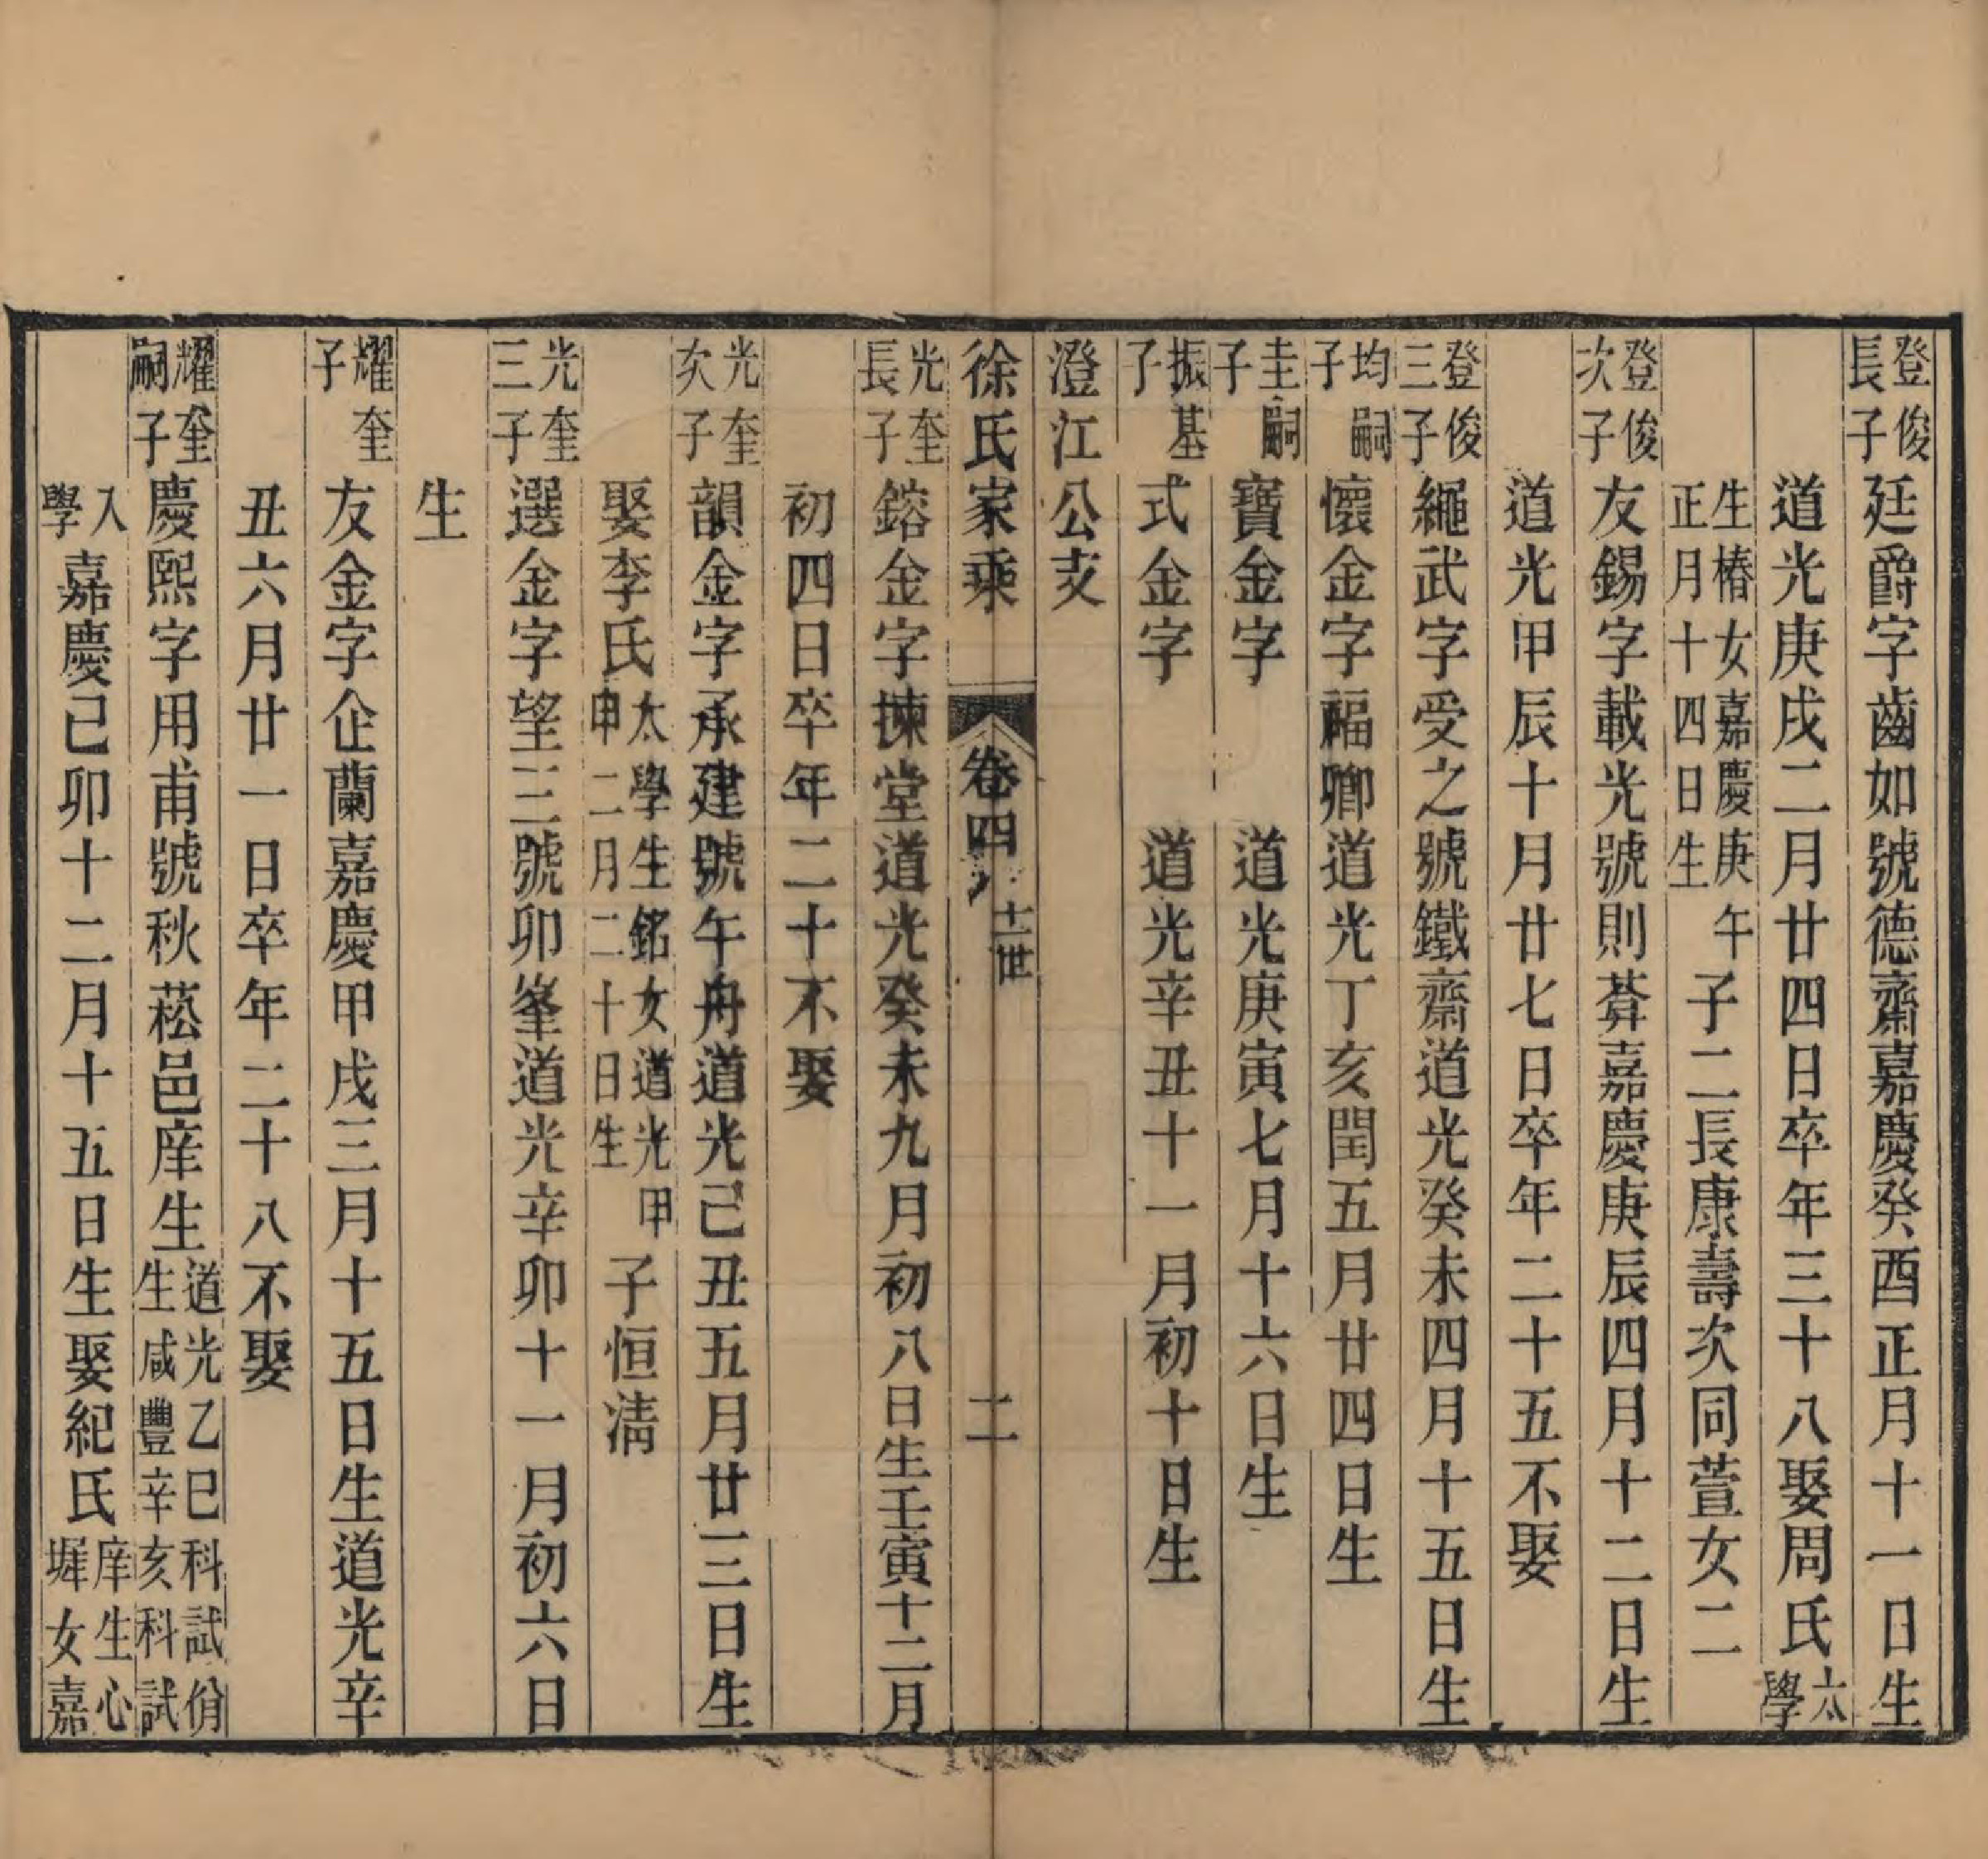 登俊長子廷爵字齒如號德齋嘉慶癸酉正月十一日生
道光庚戌二月廿四日卒年三十八娶周氏太學
生椿女嘉慶庚午正月十四日生子二長康壽次同萱女二
登俊次子友錫字載光號則葊嘉慶庚辰四月十二日生
道光甲辰十月廿七日卒年二十五不娶
登俊三子繩武字受之號鐵齋道光癸未四月十五日生
均嗣子懷金字福卿道光丁亥閏五月廿四日生
圭嗣子寶金字 道光庚寅七月十六日生
振基子式金字 道光辛丑十一月初十日生
澄江公支
徐氏家乘 卷四 十一世 二
光奎長子鎔金字揀堂道光癸未九月初八日生壬寅十二月
初四日卒年二十不娶
光奎次子韻金字承建號午舟道光己丑五月廿三日生
娶李氏太學生銘女道光甲申二月二十日生子恒淸
光奎三子選金字望三號卯峯道光辛卯十一月初六日
生
耀奎子友金字企蘭嘉慶甲戌三月十五日生道光辛
丑六月廿一日卒年二十八不娶
耀奎嗣子慶熙字用甫號秋菘邑庠生道光乙巳科試佾生咸豐辛亥科試
入學嘉慶己卯十二月十五日生娶紀氏庠生心墀女嘉